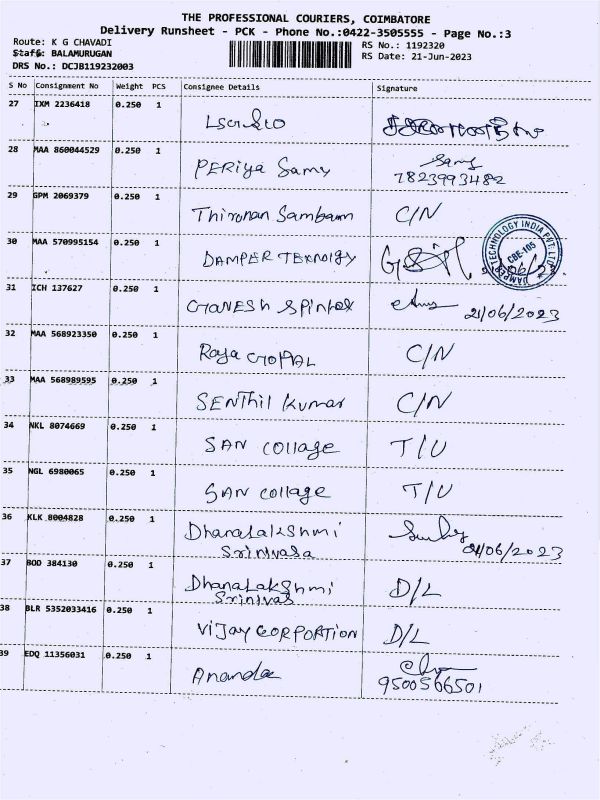 THE PROFESSIONAL COURIERS, COIMBATORE
Delivery Runsheet - PCK - Phone No.:0422-3505555 - Page No.:3
Route: K G CHAVADI
RS No.: 1192320
Staff: BALAMURUGAN
RS Date: 21-Jun-2023
DRS No.: DCJB119232003
S No Consignment No Weight PCS Consignee Details Signature
27 IXM 2236418 0.250 1
28 MAA 860044529 0.250 1 PERiya Samy Samy
7823993482
29 GPM 2069379 0.250 1 Thironan Sambam C/N
30 MAA 570995154 0.250 1 DAMPER TEKNOlgy
DAMPER TECHNOLOGY INDIA PVT. LTD.
CBE-105
31 ICH 137627 0.250 1 GANESh Spintex 21/06/2023
32 MAA 568923350 0.250 1 Raja GOPAL C/N
33 MAA 568989595 0.250 1 SENThil Kumar C/N
34 NKL 8074669 0.250 1 SAN Collage T/U
35 NGL 6980065 0.250 1 SAN Collage T/U
36 KLK 8004828 0.250 1 DhanaLakShmi
Srinivasa 21/06/2023
37 BOD 384130 0.250 1 DhanaLakShmi D/L
Srinivas
38 BLR 5352033416 0.250 1 ViJay CORPORTION D/L
39 EDQ 11356031 0.250 1 Ananda
9500566501